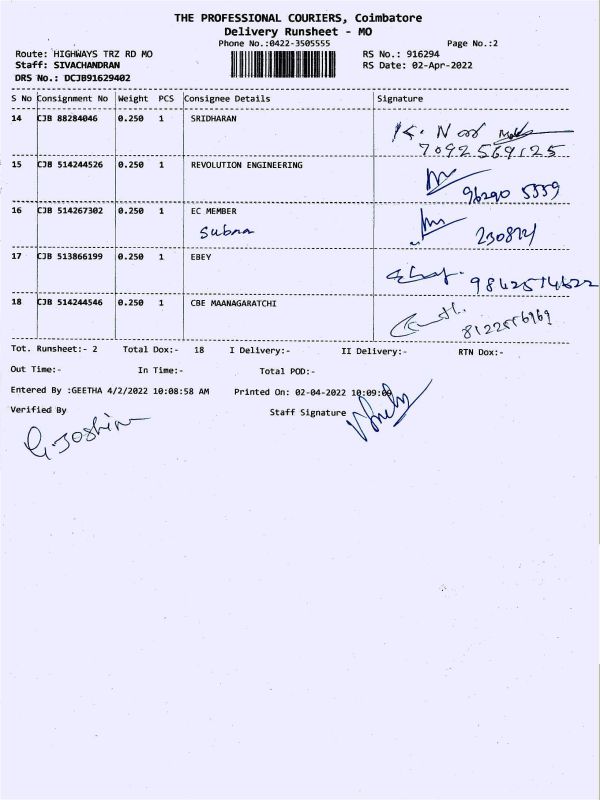 THE PROFESSIONAL COURIERS, Coimbatore
Delivery Runsheet - MO
Phone No.:0422-3505555 Page No.:2
Route: HIGHWAYS TRZ RD MO RS No.: 916294
Staff: SIVACHANDRAN RS Date: 02-Apr-2022
DRS No.: DCJB91629402
S No Consignment No Weight PCS Consignee Details Signature
14 CJB 88284046 0.250 1 SRIDHARAN
7092569125
15 CJB 514244526 0.250 1 REVOLUTION ENGINEERING
96290 5559
16 CJB 514267302 0.250 1 EC MEMBER
17 CJB 513866199 0.250 1 EBEY
18 CJB 514244546 0.250 1 CBE MAANAGARATCHI
Tot. Runsheet:- 2 Total Dox:- 18 I Delivery:- II Delivery:- RTN Dox:-
Out Time:- In Time:- Total POD:-
Entered By :GEETHA 4/2/2022 10:08:58 AM Printed On: 02-04-2022 10:09:00
Verified By Staff Signature